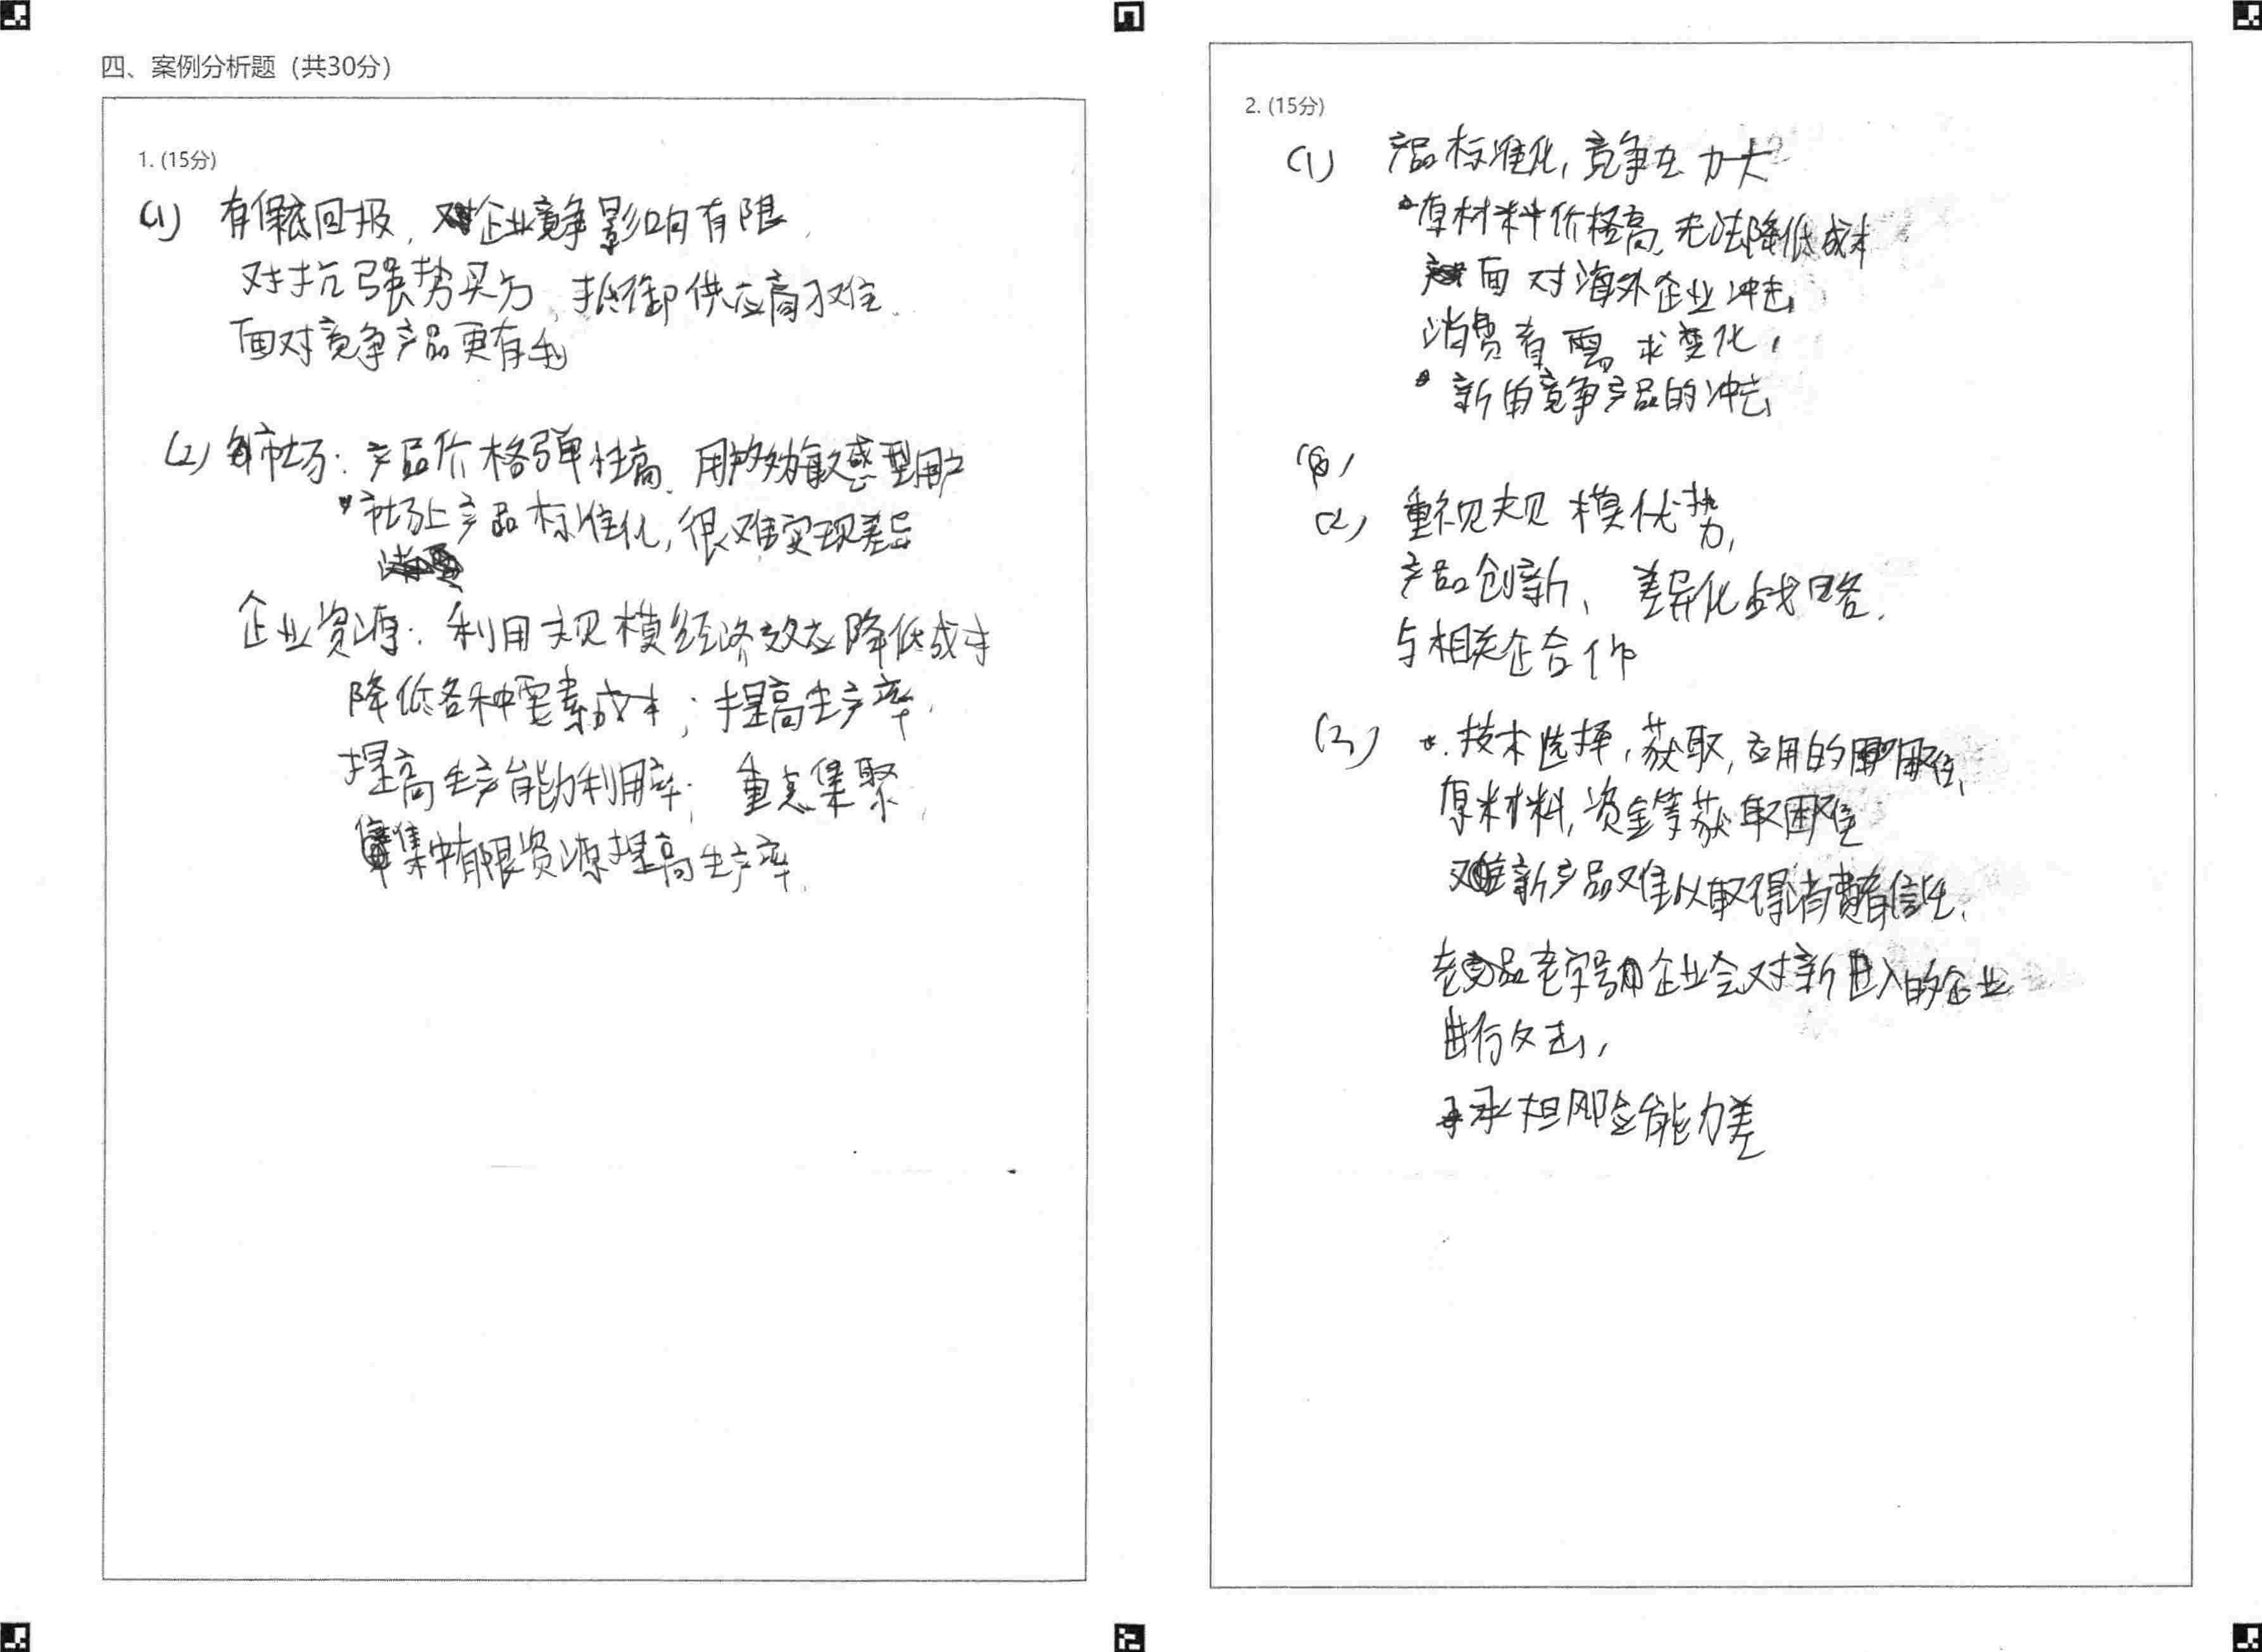 四、案例分析题（共30分）
1. (15分)
(1) 有保底回报，企业竞争影响有限，
对抗强势买方，抵御供应商
面对竞争产品更有利
(2) 市场：产品价格弹性高、敏感型用户
市场上产品标准化，很难实现差异
企业资源：利用规模经济效应降低成本
降低各种要素成本；提高生产率，
提高生产能力利用率；重点集聚，
集中有限资源提高生产率，
2. (15分)
(1) 产品标准化，竞争压力大
原材料价格高，无法降低成本
面对海外企业冲击，
消费者需求变化，
新的竞争产品的冲击
(2) 重视规模优势，
产品创新、差异化战略，
与相关企合作
(3) 技术选择，获取，应用的
原材料，资金等获取困难
新产品难以取得消费者信任，
老字号企业会对新进入的企业
进行反击，
承担风险能力差